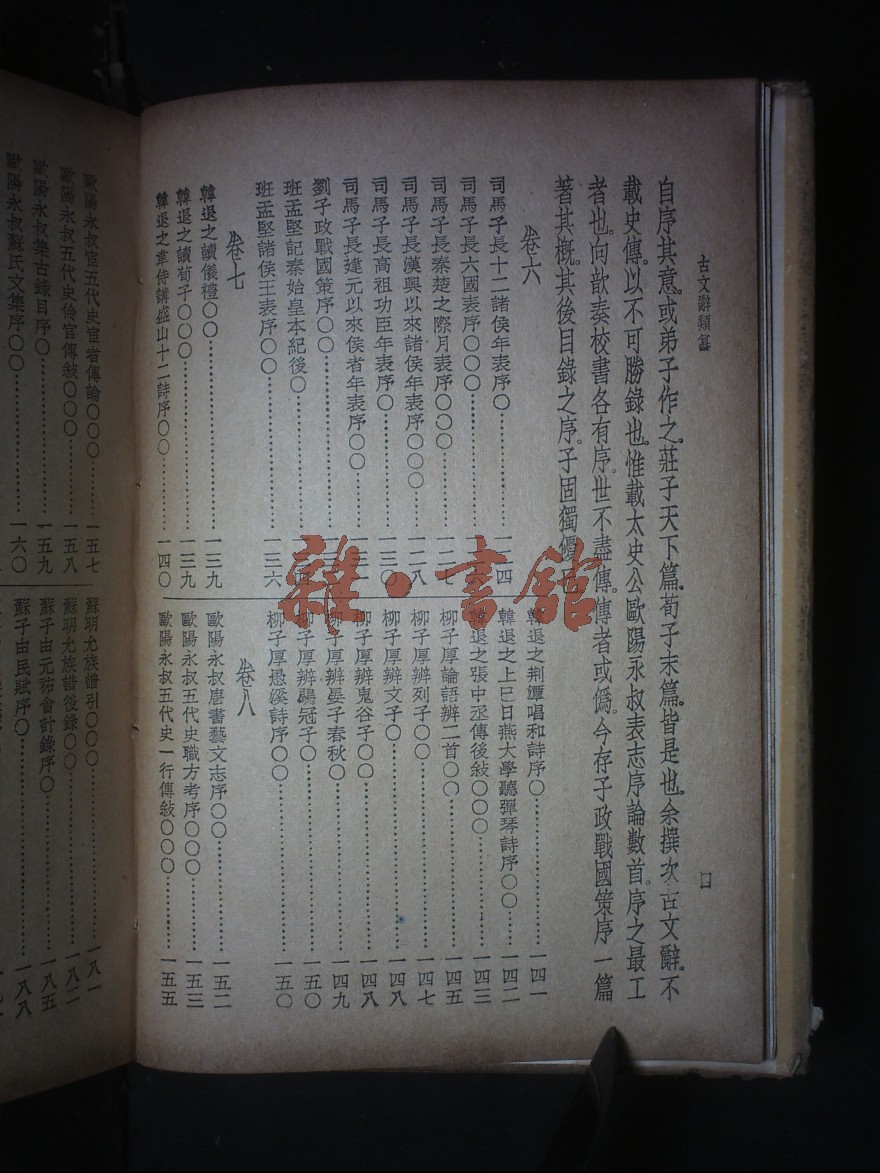 古文辭類纂
自序其意。或弟子作之。莊子天下篇。荀子末篇。皆是也。余撰次古文辭。不
載史傳。以不可勝錄也。惟載太史公歐陽永叔表志序論數首。序之最工
者也。向歆奏校書各有序。世不盡傳。傳者或僞。今存子政戰國策序一篇
著其概。其後目錄之序。子固獨優已。
卷六
司馬子長十二諸侯年表序〇……一二四
司馬子長六國表序〇〇〇……
司馬子長秦楚之際月表序〇〇〇……
司馬子長漢興以來諸侯年表序〇〇〇……一二八
司馬子長高祖功臣年表序〇……一三〇
司馬子長建元以來侯者年表序〇〇……
劉子政戰國策序〇〇……
班孟堅記秦始皇本紀後〇……
班孟堅諸侯王表序〇〇……一三六
卷七
韓退之讀儀禮〇〇……一三九
韓退之讀荀子〇〇〇……一三九
韓退之韋侍講盛山十二詩序〇〇……一四〇
韓退之荆潭唱和詩序〇……一四一
韓退之上巳日燕大學聽彈琴詩序〇〇……一四二
韓退之張中丞傳後敍〇〇〇……一四三
柳子厚論語辨二首〇〇……一四五
柳子厚辨列子〇〇……一四七
柳子厚辨文子〇……一四八
柳子厚辨鬼谷子〇〇……一四八
柳子厚辨晏子春秋〇……一四九
柳子厚辨鶡冠子〇……一五〇
柳子厚愚溪詩序〇〇……一五〇
卷八
歐陽永叔唐書藝文志序〇〇……一五二
歐陽永叔五代史職方考序〇〇〇……一五三
歐陽永叔五代史一行傳敍〇〇〇……一五五
歐陽永叔宦五代史宦者傳論〇〇〇……一五七
歐陽永叔五代史伶官傳敍〇〇〇……一五八
歐陽永叔集古錄目序〇……一五九
歐陽永叔蘇氏文集序〇〇……一六〇
蘇明允族譜引〇〇〇……一八一
蘇明允族譜後錄〇〇……一八二
蘇子由元祐會計錄序〇……一八五
蘇子由民賦序〇……一八八
雜·書館